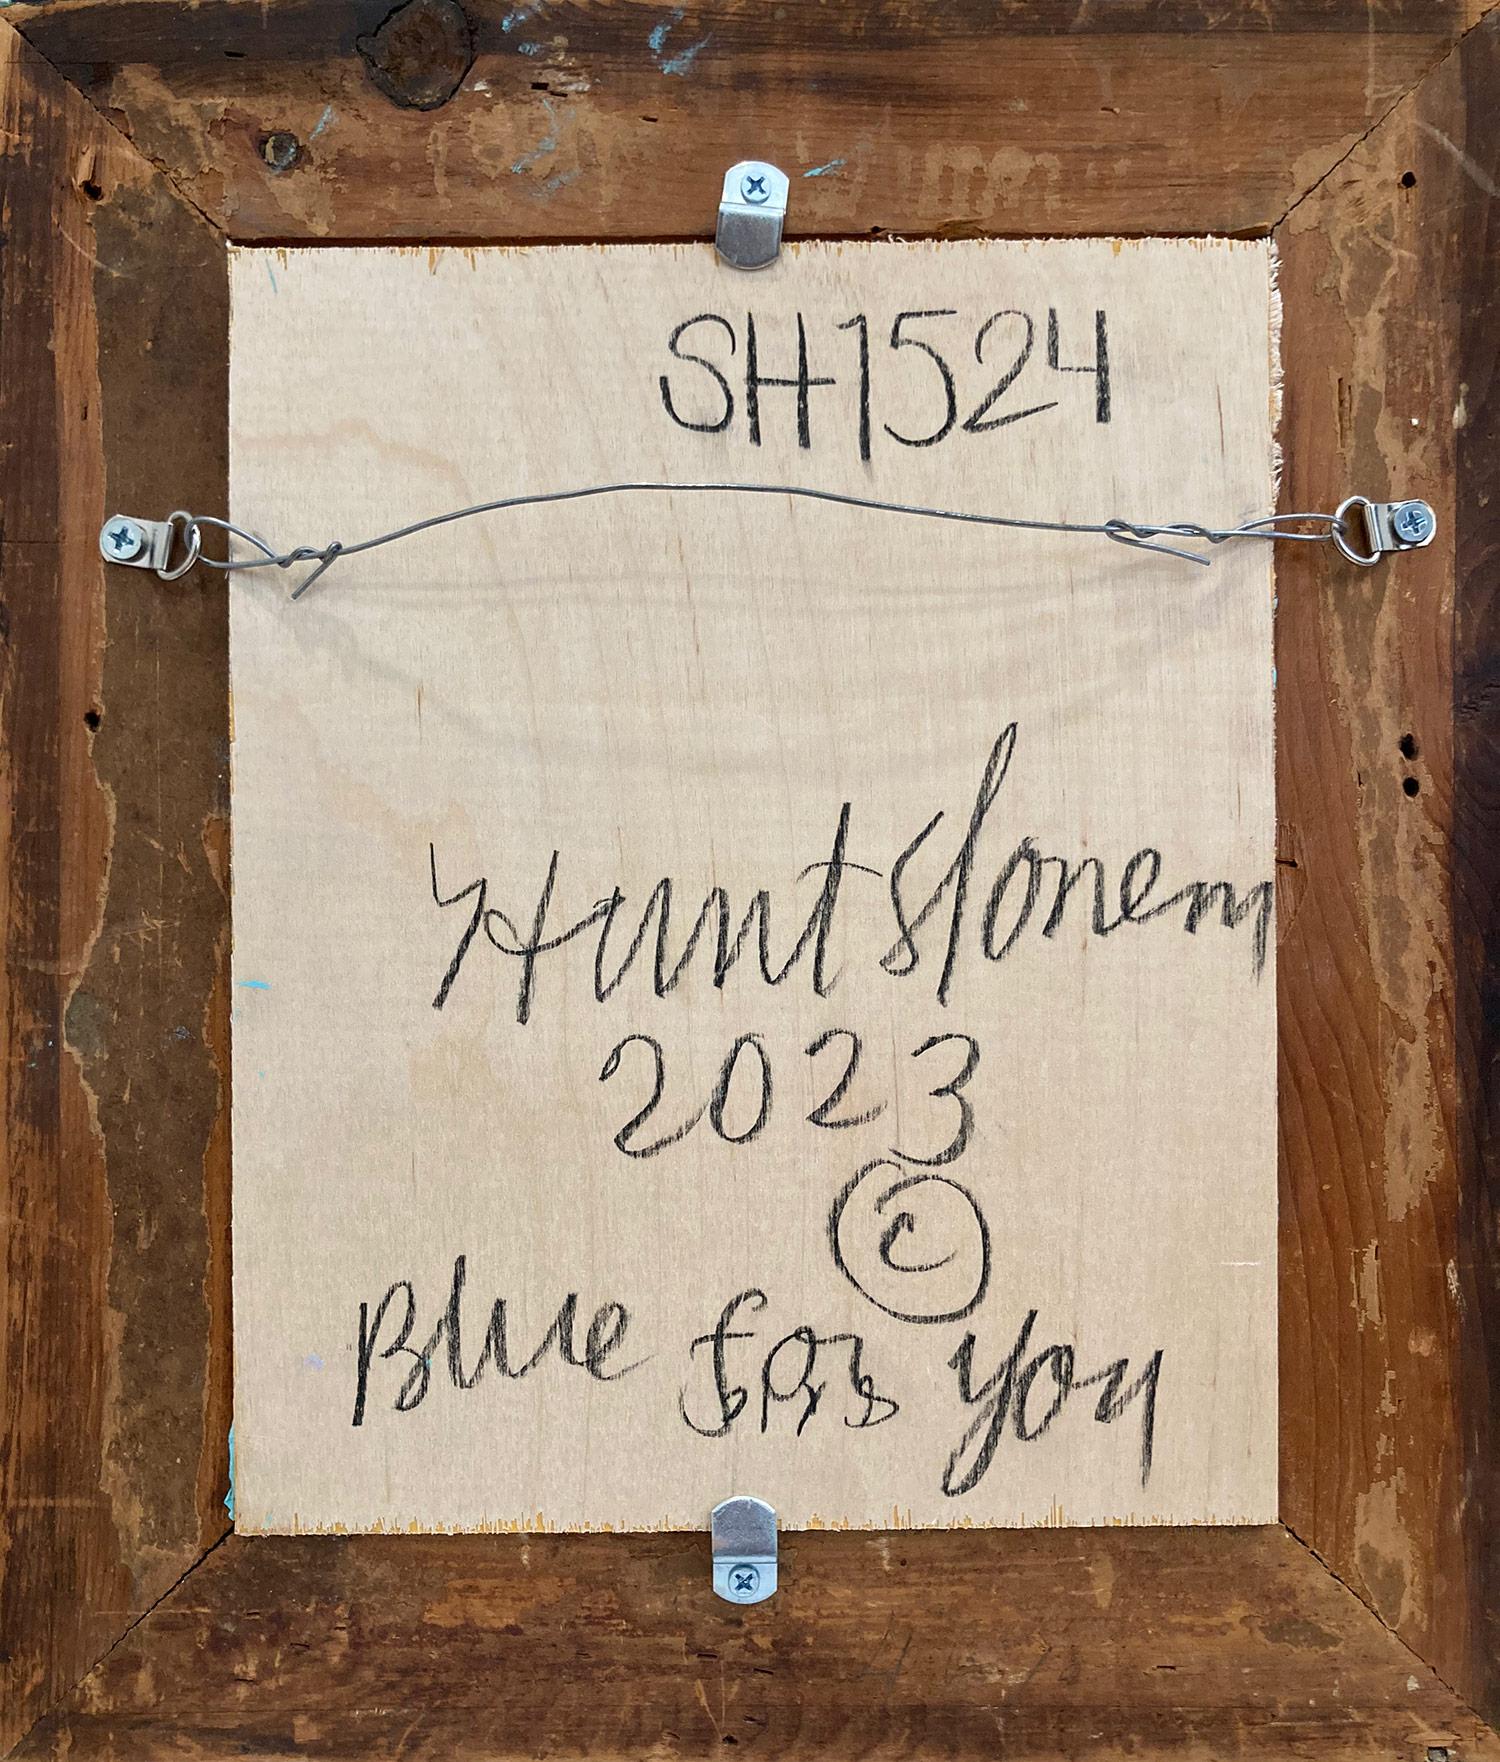 SH1524
Hunt Slonem
2023
©
Blue for you